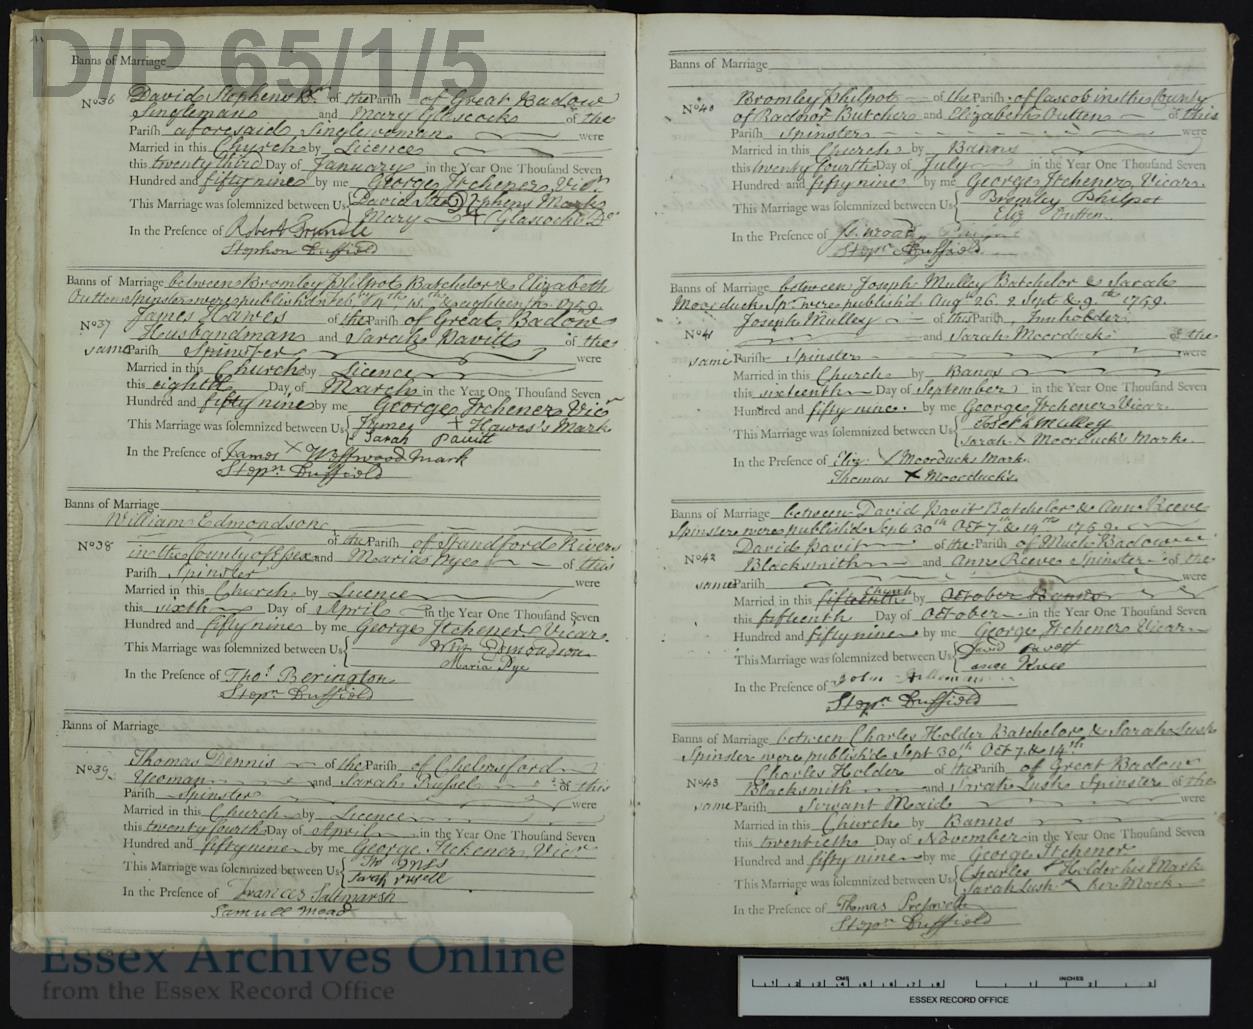 D/P 65/1/5
Banns of Marriage
No 36 David Stephens of the Parish of Great Badow
Singleman and Mary Glascocks of the
Parish aforesaid Singlewoman were
Married in this Church by Licence
this twenty third Day of January in the Year One Thousand Seven
Hundred and fifty nine by me George Itchener Vicr.
This Marriage was solemnized between Us David Stephens Mark
Mary X Glascocks Do
In the Presence of Robert
Stephen Duffield
Banns of Marriage between Bromley Philpot Batchelor & Elizabeth
Outten Spinster were publish'd Feb. 4th & eighteenth 1759
No 37 James Hawes of the Parish of Great Badow
Husbandman and Sarah Pavitt of the
same Parish Spinster were
Married in this Church by Licence
this eighth Day of March in the Year One Thousand Seven
Hundred and fifty nine by me George Itchener Vicr
This Marriage was solemnized between Us James X Hawes's Mark
Sarah Pavitt
In the Presence of James X Westwood Mark
Stepn. Duffield
Banns of Marriage
William Edmondson
No 38 of the Parish of Standford Rivers
in the County of Essex and Maria Pye of this
Parish Spinster were
Married in this Church by Licence
this sixth Day of April in the Year One Thousand Seven
Hundred and fifty nine by me George Itchener Vicar
This Marriage was solemnized between Us Wm Edmondson
Maria Pye
In the Presence of Thos. Berington
Stepn. Duffield
Banns of Marriage
No 39 Thomas Dennis of the Parish of Chelmsford
Yeoman and Sarah Russel of this
Parish Spinster were
Married in this Church by Licence
this twenty fourth Day of April in the Year One Thousand Seven
Hundred and fifty nine by me George Itchener Vicr.
This Marriage was solemnized between Us
Sarah rusell
In the Presence of Frances Saltmarsh
Samuell Mead
Banns of Marriage
No 40 Bromley Philpot of the Parish of Cascob in the County
of Radnor Butcher and Elizabeth Outten of this
Parish Spinster were
Married in this Church by Banns
this twenty fourth Day of July in the Year One Thousand Seven
Hundred and fifty nine by me George Itchener Vicar
This Marriage was solemnized between Us Bromley Philpot
Eliz Outten
In the Presence of
Stepn. Duffield
Banns of Marriage between Joseph Mulley Batchelor & Sarah
Moorduck Spr. were publish'd Aug. 26. 2 Sept. & 9th 1759.
No 41 Joseph Mulley of this Parish, Innholder
and Sarah Moorduck of the
same Parish Spinster were
Married in this Church by Banns
this sixteenth Day of September in the Year One Thousand Seven
Hundred and fifty nine by me George Itchener Vicar
This Marriage was solemnized between Us Joseph Mulley
Sarah X Moorduck's Mark
In the Presence of Eliz. X Moorducks Mark
Thomas X Moorduck's
Banns of Marriage between David Pavit Batchelor & Ann Reeve
Spinster were publish'd Sept. 30th Oct 7th & 14th 1759
No 42 David Pavit of the Parish of Much Badow
Blacksmith and Ann Reeve Spinster of the
same Parish were
Married in this fifteenth Church by October Banns
this fifteenth Day of October in the Year One Thousand Seven
Hundred and fifty nine by me George Itchener Vicar
This Marriage was solemnized between Us David Pavett
In the Presence of John
Stepn. Duffield
Banns of Marriage between Charles Holder Batchelor & Sarah Lush
Spinster were publish'd Sept 30th Oct 7 & 14th
No 43 Charles Holder of the Parish of Great Badow
Blacksmith and Sarah Lush Spinster of the
same Parish Servant Maid were
Married in this Church by Banns
this twentieth Day of November in the Year One Thousand Seven
Hundred and fifty nine by me George Itchener
This Marriage was solemnized between Us Charles Holder his Mark
Sarah Lush X her Mark
In the Presence of Thomas
Stepn. Duffield
Essex Archives Online
from the Essex Record Office
CMS
INCHES
1 2 3 4 5 6 7 8
1 2 3
ESSEX RECORD OFFICE